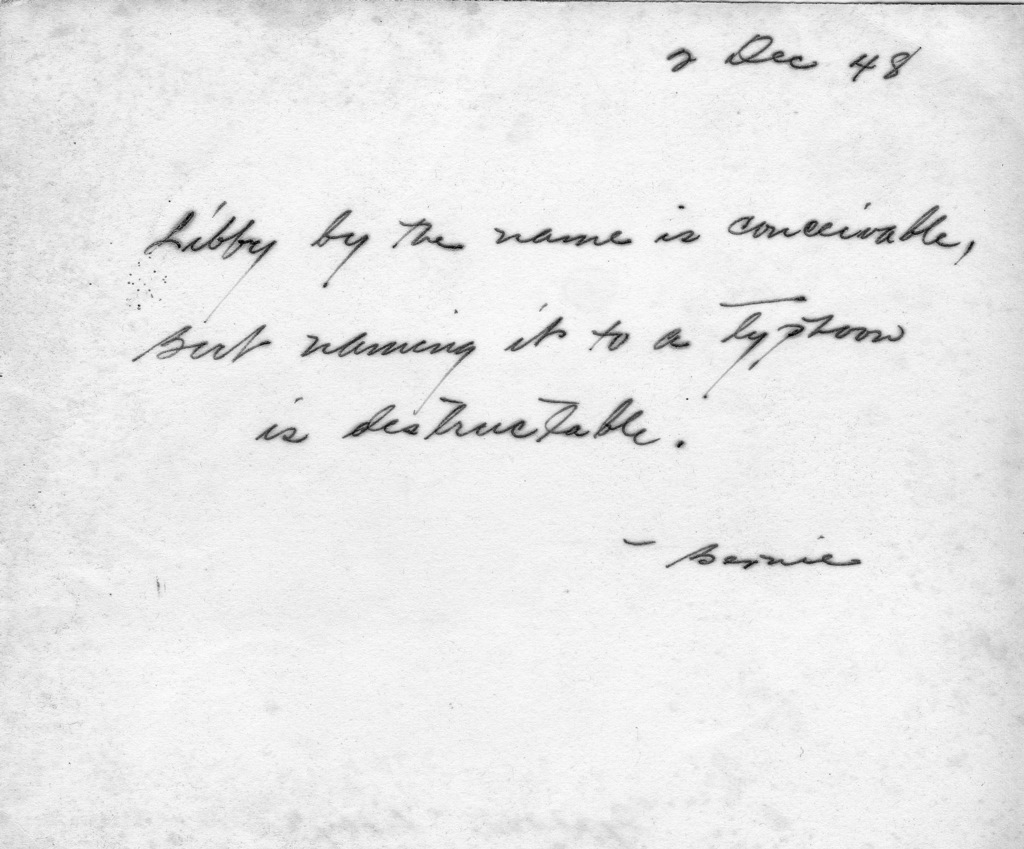 2 Dec 48
Libby by the name is conceivable,
But naming it to a Typhoon
is destructable.
- Bernie